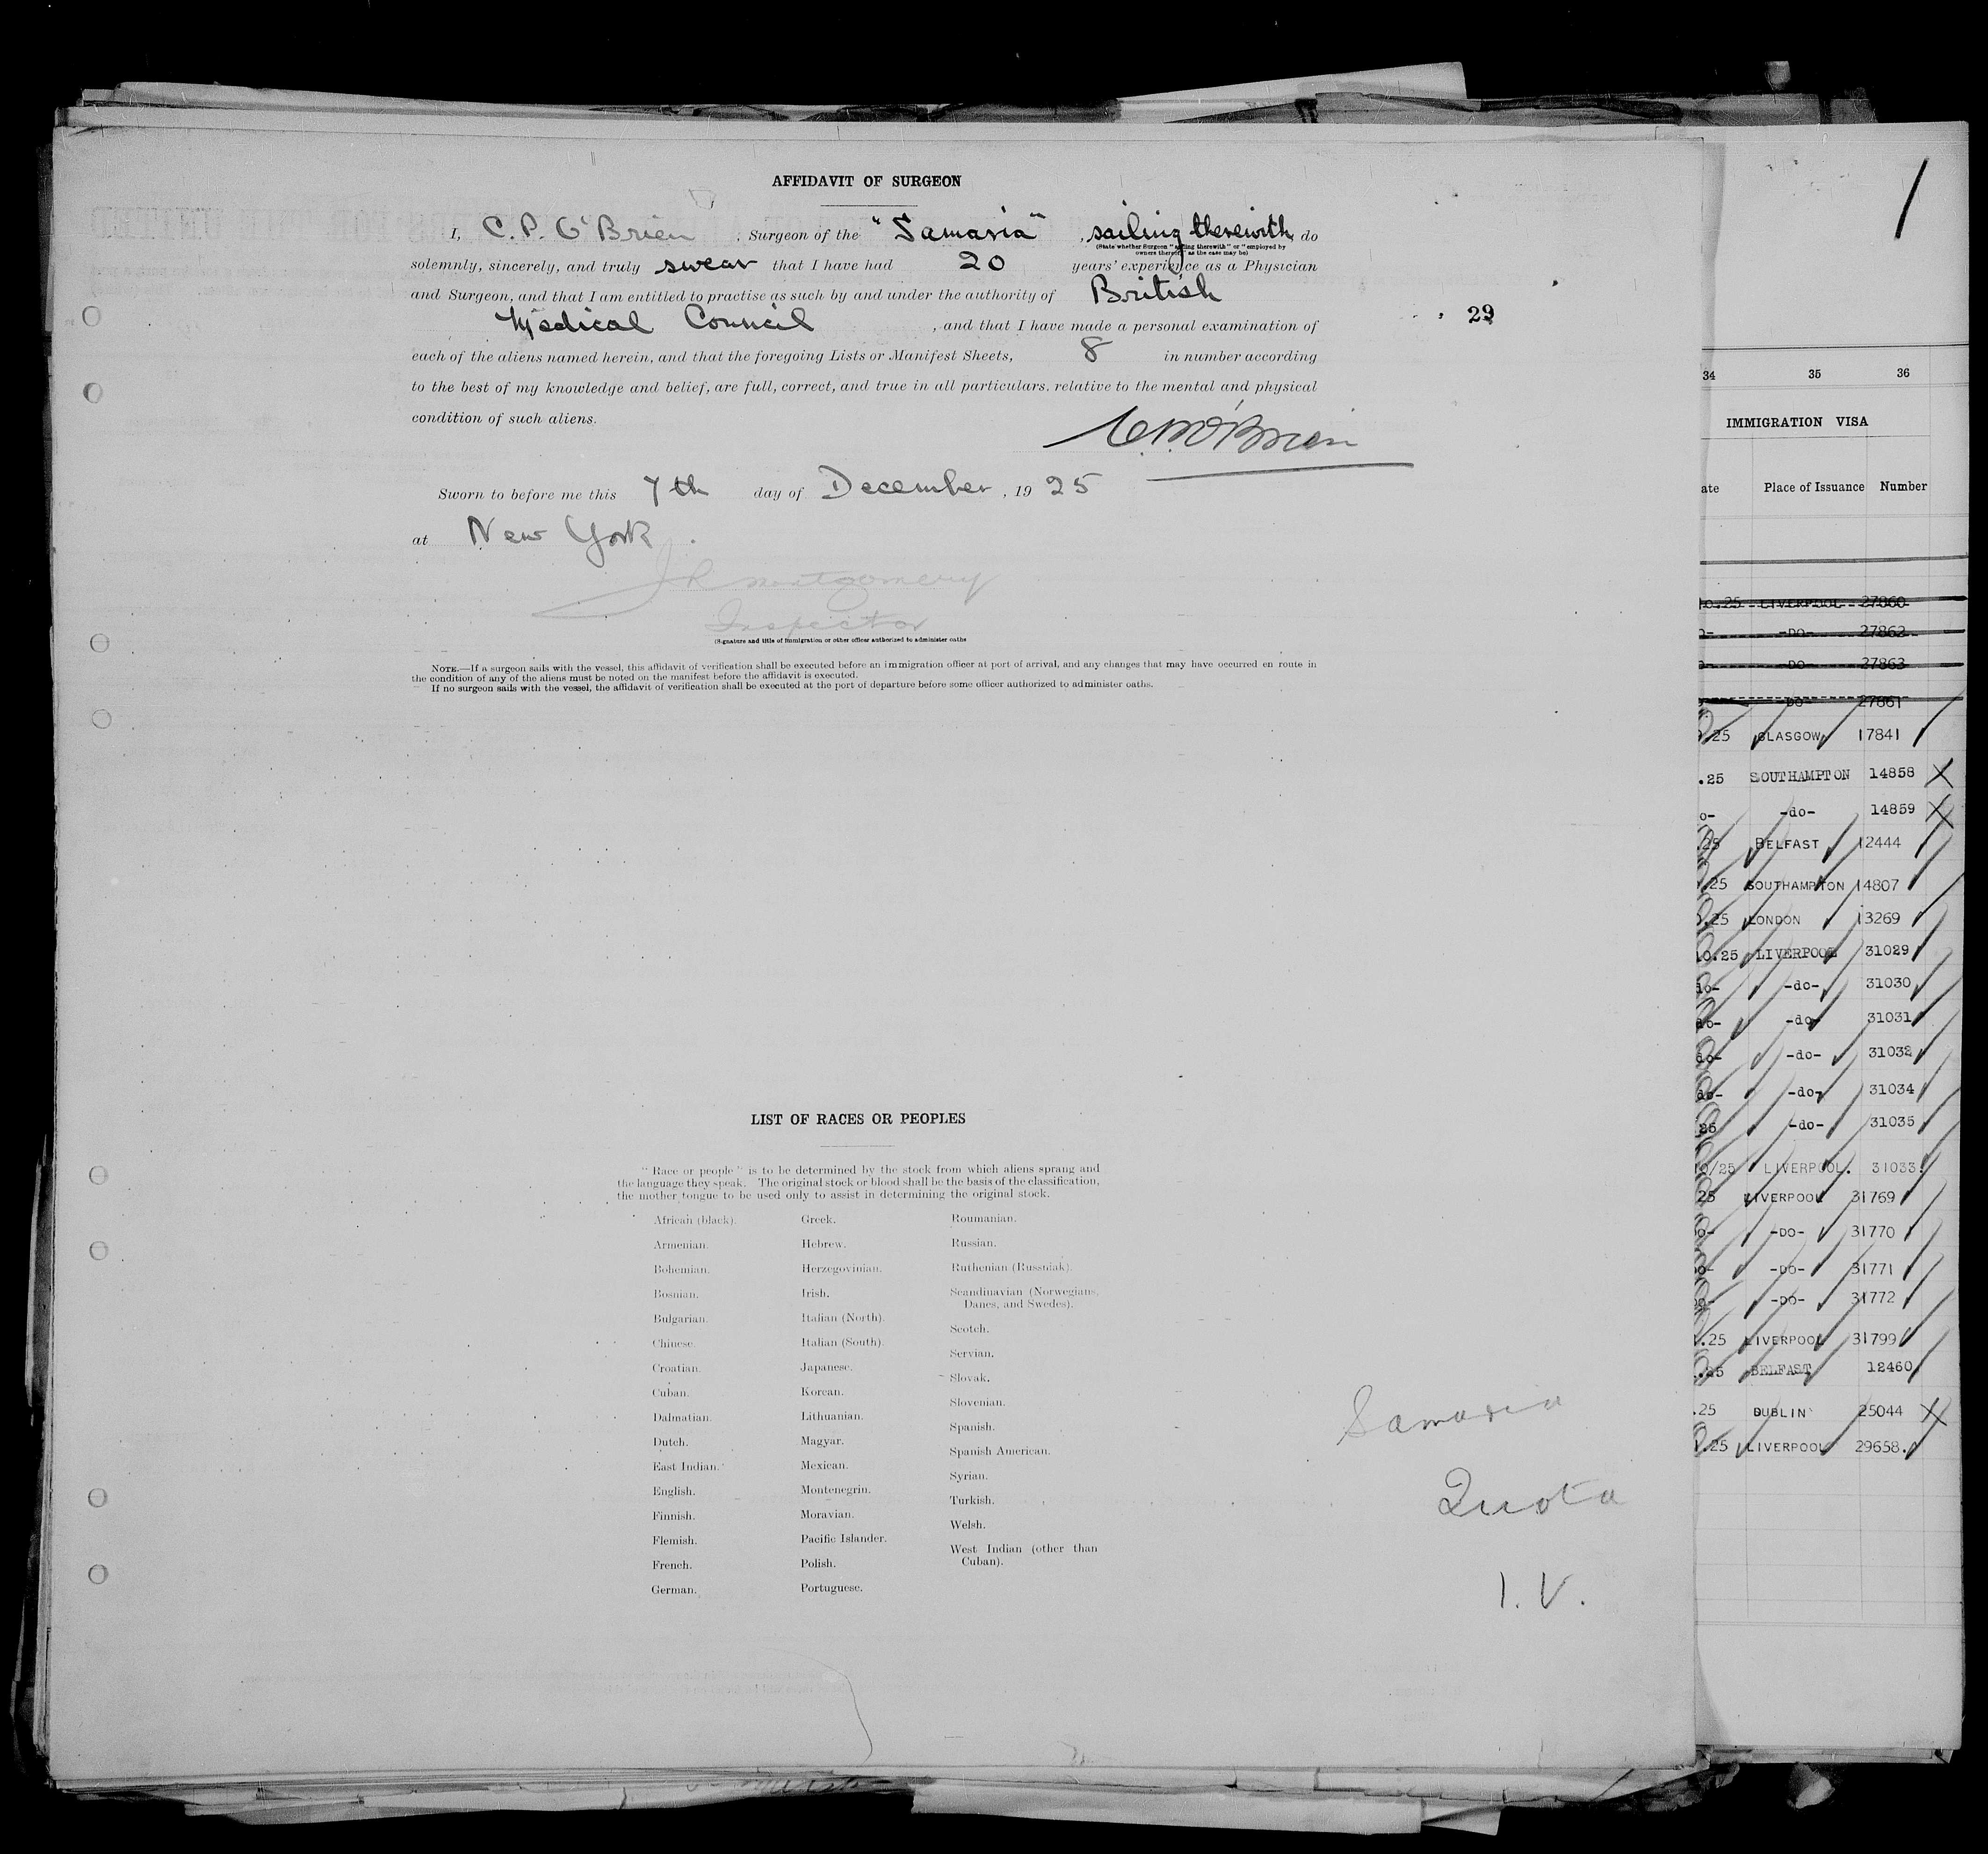 AFFIDAVIT OF SURGEON
I, C.P. O'Brien, Surgeon of the "Samaria", sailing therewith, do
(State whether Surgeon "sailing therewith" or "employed by
owners thereof," as the case may be)
solemnly, sincerely, and truly swear that I have had 20 years' experience as a Physician
and Surgeon, and that I am entitled to practise as such by and under the authority of British
Medical Council, and that I have made a personal examination of
each of the aliens named herein, and that the foregoing Lists or Manifest Sheets, 8 in number according
to the best of my knowledge and belief, are full, correct, and true in all particulars, relative to the mental and physical
condition of such aliens.
C.P. O'Brien
Sworn to before me this 7th day of December, 1925
at New York.
J R Montgomery
Inspector
(Signature and title of immigration or other officer authorized to administer oaths
NOTE.—If a surgeon sails with the vessel, this affidavit of verification shall be executed before an immigration officer at port of arrival, and any changes that may have occurred en route in
the condition of any of the aliens must be noted on the manifest before the affidavit is executed.
If no surgeon sails with the vessel, the affidavit of verification shall be executed at the port of departure before some officer authorized to administer oaths.
29
LIST OF RACES OR PEOPLES
"Race or people" is to be determined by the stock from which aliens sprang and
the language they speak. The original stock or blood shall be the basis of the classification,
the mother tongue to be used only to assist in determining the original stock.
African (black).
Armenian.
Bohemian.
Bosnian.
Bulgarian.
Chinese.
Croatian.
Cuban.
Dalmatian.
Dutch.
East Indian.
English.
Finnish.
Flemish.
French.
German.
Greek.
Hebrew.
Herzegovinian.
Irish.
Italian (North).
Italian (South).
Japanese.
Korean.
Lithuanian.
Magyar.
Mexican.
Montenegrin.
Moravian.
Pacific Islander.
Polish.
Portuguese.
Roumanian.
Russian.
Ruthenian (Russniak).
Scandinavian (Norwegians,
Danes, and Swedes).
Scotch.
Servian.
Slovak.
Slovenian.
Spanish.
Spanish American.
Syrian.
Turkish.
Welsh.
West Indian (other than
Cuban).
Samaria
Quota
I. V.
1
34 35 36
IMMIGRATION VISA
ate Place of Issuance Number
10.25 LIVERPOOL 27860
-DO- 27862
-DO- 27863
-DO- 27861
.25 GLASGOW 17841
.25 SOUTHAMPTON 14858
o- -do- 14859
.25 BELFAST 12444
.25 SOUTHAMPTON 14807
.25 LONDON 13269
10.25 LIVERPOOL 31029
do- -do- 31030
do- -do- 31031
do- -do- 31032
do- -do- 31034
25 -do- 31035
10/25 LIVERPOOL. 31033.
25 LIVERPOOL 31769
o- -DO- 31770
o- -DO- 31771
o- -DO- 31772
.25 LIVERPOOL 31799
.25 BELFAST 12460
.25 DUBLIN 25044
.25 LIVERPOOL 29658.